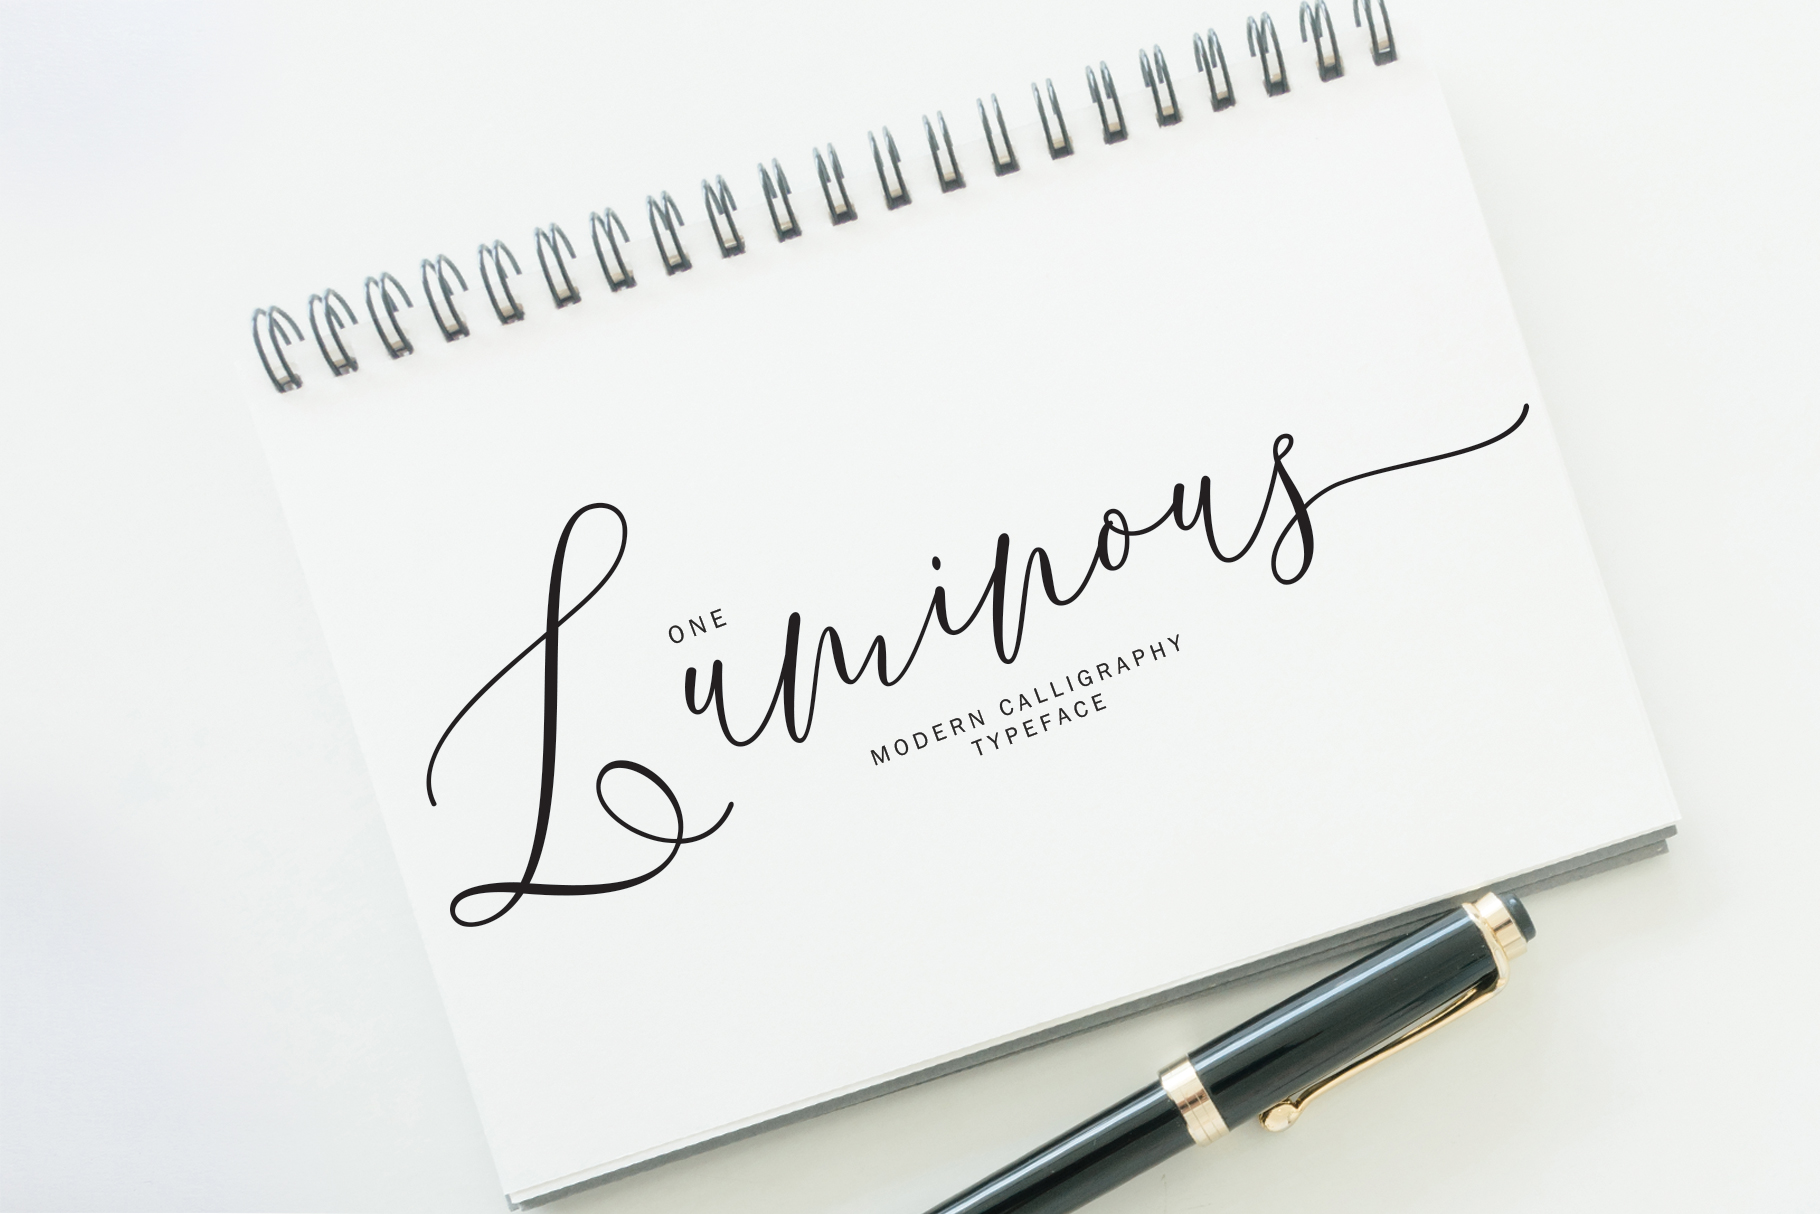 ONE
Luminous
MODERN CALLIGRAPHY
TYPEFACE